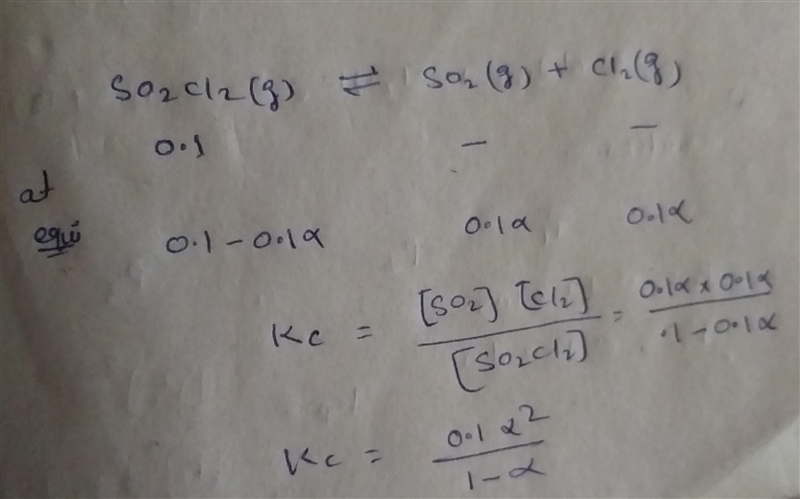 SO2Cl2(g) ⇌ SO2(g) + Cl2(g)
0.1 – –
at
equi 0.1-0.1α 0.1α 0.1α
Kc = [SO2] [Cl2] / [SO2Cl2] = 0.1α x 0.1α / .1-0.1α
Kc = 0.1 α² / 1-α